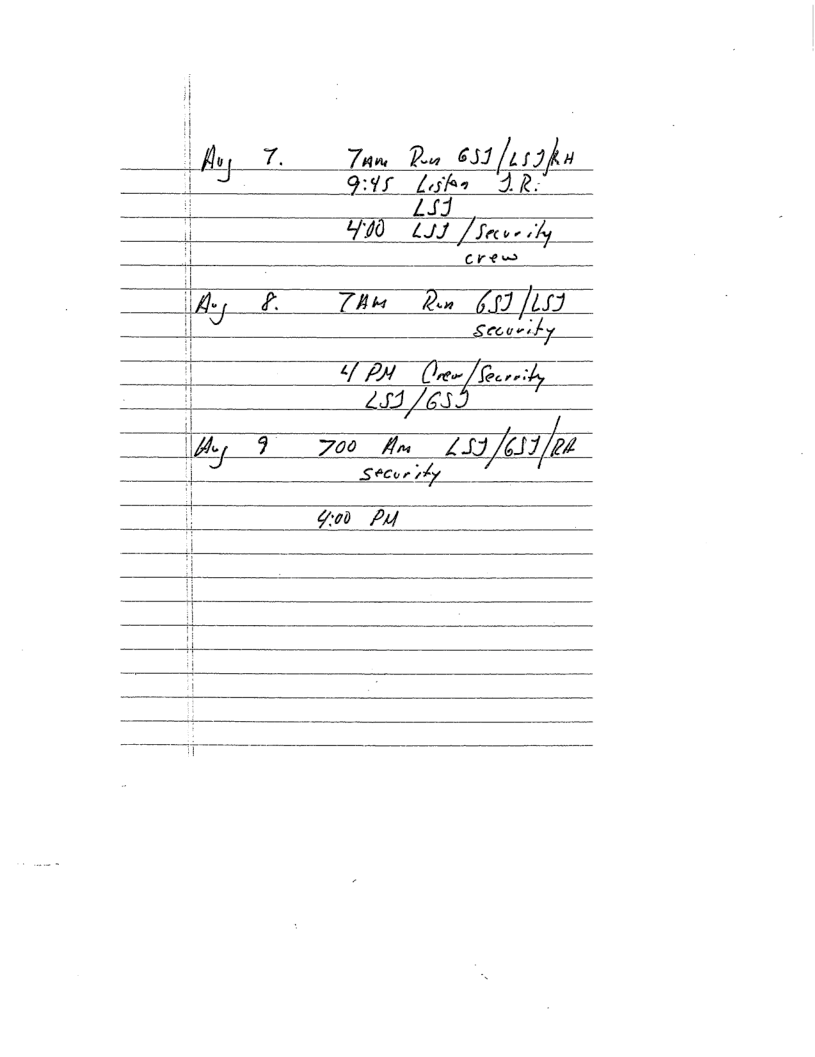 Aug 7. 7AM Run GSJ/LSJ/RH
9:45 J.R.
LSJ
4:00 LSJ/Security
crew
Aug 8. 7AM Run GSJ/LSJ
security
4 PM Crew/Security
LSJ/GSJ
Aug 9 700 Am LSJ/GSJ/RA
security
4:00 PM